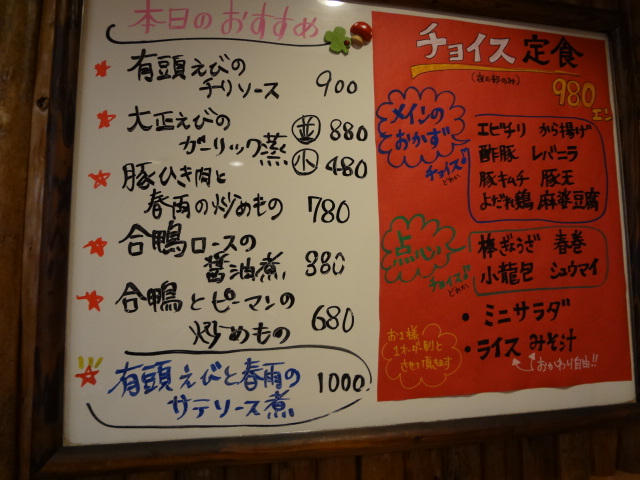 本日のおすすめ
有頭えびの
チリソース 900
大正えびの 並 880
ガーリック蒸 小 480
豚ひき肉と
春雨の炒めもの 780
合鴨ロースの
醤油煮 880
合鴨とピーマンの
炒めもの 680
有頭えびと春雨の
サテソース煮 1000
チョイス定食
(夜の部のみ)
980エン
メインの
おかず
チョイス!
どれか
エビチリ から揚げ
酢豚 レバニラ
豚キムチ 豚玉
よだれ鶏 麻婆豆腐
点心
チョイス!
どれか
棒ぎょうざ 春巻
小龍包 シュウマイ
・ミニサラダ
・ライス みそ汁
おかわり自由!!
お1様
させて頂きます